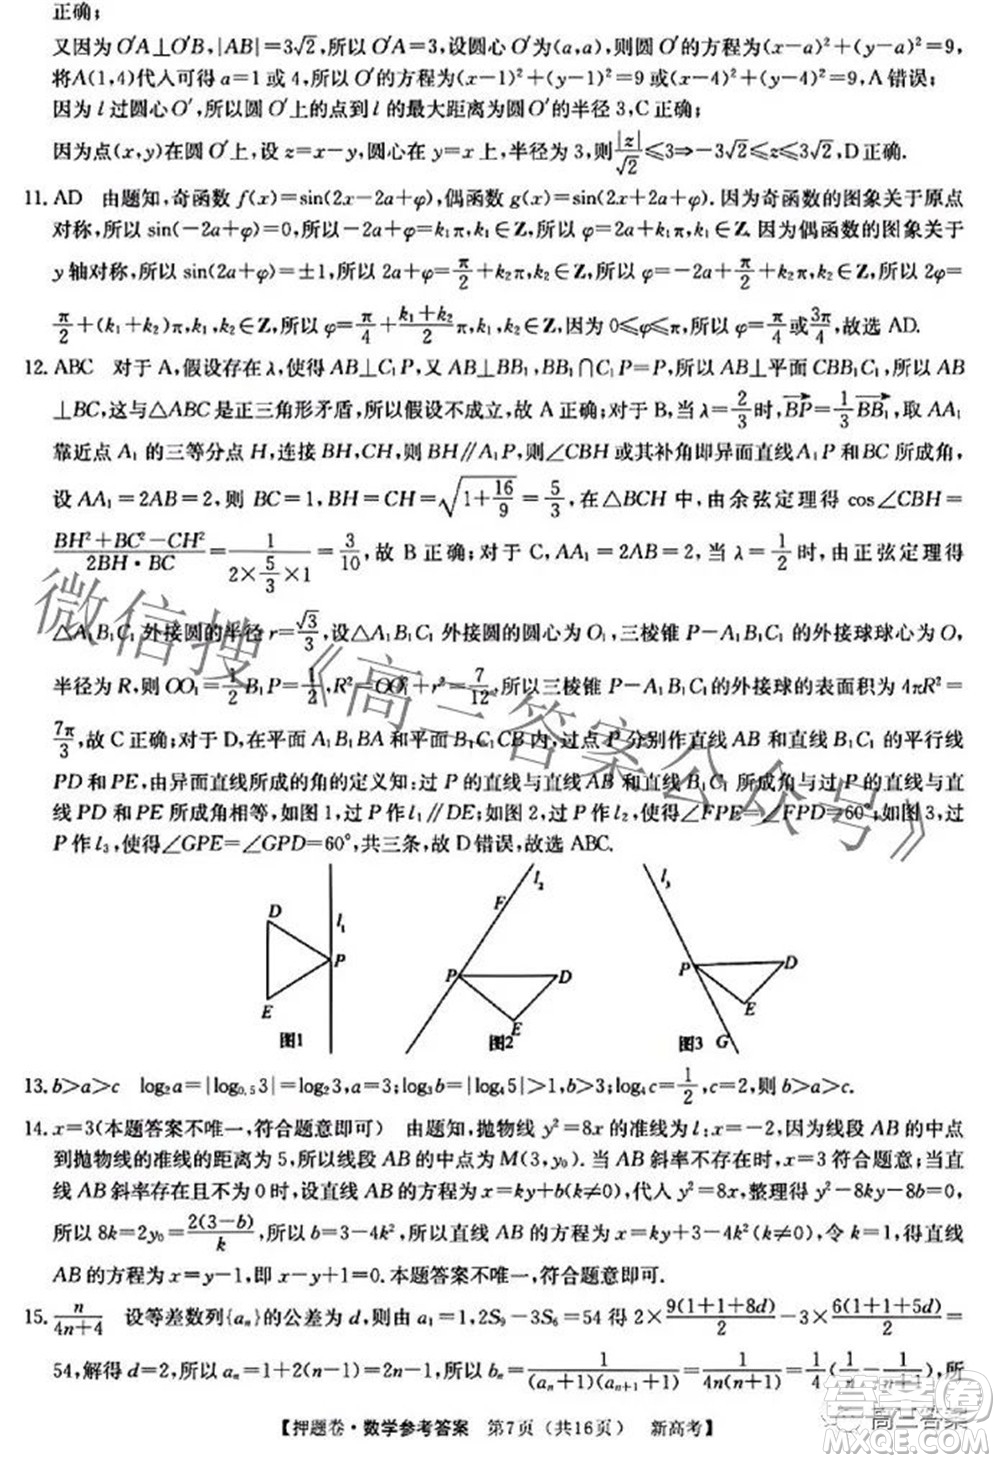 正确;
又因为 O′A⊥O′B,|AB|=3√2,所以 O′A=3,设圆心 O′为(a,a),则圆 O′的方程为(x-a)²+(y-a)²=9,
将A(1,4)代入可得 a=1 或 4,所以 O′的方程为(x-1)²+(y-1)²=9 或(x-4)²+(y-4)²=9,A 错误;
因为 l 过圆心 O′,所以圆 O′上的点到 l 的最大距离为圆 O′的半径 3,C 正确;
因为点(x,y)在圆 O′上,设 z=x-y,圆心在 y=x 上,半径为 3,则|z|/√2≤3⇒-3√2≤z≤3√2,D 正确.
11. AD 由题知,奇函数 f(x)=sin(2x-2a+φ),偶函数 g(x)=sin(2x+2a+φ).因为奇函数的图象关于原点
对称,所以 sin(-2a+φ)=0,所以-2a+φ=k₁π,k₁∈Z,所以 φ=2a+k₁π,k₁∈Z.因为偶函数的图象关于
y 轴对称,所以 sin(2a+φ)=±1,所以 2a+φ=π/2+k₂π,k₂∈Z,所以 φ=-2a+π/2+k₂π,k₂∈Z,所以 2φ=
π/2+(k₁+k₂)π,k₁,k₂∈Z,所以 φ=π/4+(k₁+k₂)/2 π,k₁,k₂∈Z.因为 0≤φ≤π,所以 φ=π/4或3π/4,故选 AD.
12. ABC 对于 A,假设存在 λ,使得 AB⊥C₁P,又 AB⊥BB₁,BB₁∩C₁P=P,所以 AB⊥平面 CBB₁C₁,所以 AB
⊥BC,这与△ABC 是正三角形矛盾,所以假设不成立,故 A 正确;对于 B,当 λ=2/3时,BP→=1/3 BB₁→,取 AA₁
靠近点 A₁ 的三等分点 H,连接 BH,CH,易证 BH∥A₁P,则∠CBH 或其补角即异面直线A₁P 和BC 所成角,
设 AA₁=2AB=2,则 BC=1,BH=CH=√(1+16/9)=5/3,在△BCH 中,由余弦定理得 cos∠CBH=
(BH²+BC²-CH²)/(2BH·BC)=1/(2×5/3×1)=3/10,故 B 正确;对于 C,AA₁=2AB=2,当 λ=1/2时,由正弦定理得
△A₁B₁C₁ 外接圆的半径 r=√3/3,设△A₁B₁C₁ 外接圆的圆心为 O₁,三棱锥 P-A₁B₁C₁ 的外接球球心为 O,
半径为 R,则 OO₁=1/2 B₁P=1/2,R²=OO₁²+r²=7/12,所以三棱锥 P-A₁B₁C₁ 的外接球的表面积为 4πR²=
7π/3,故 C 正确;对于 D,在平面 A₁B₁BA 和平面 B₁C₁CB 内,过点 P 分别作直线 AB 和直线 B₁C₁ 的平行线
PD 和 PE,由异面直线所成的角的定义知:过 P 的直线与直线 AB 和直线 B₁C₁ 所成角与过 P 的直线与直
线 PD 和 PE 所成角相等,如图 1,过 P 作 l₁∥DE;如图 2,过 P 作 l₂,使得∠FPE=∠FPD=60°;如图 3,过
P 作 l₃,使得∠GPE=∠GPD=60°,共三条,故 D 错误,故选 ABC.
D P E l₁ 图1
F l₂ P D E 图2
l₃ P D E G 图3
13. b>a>c log₂a=|log₀.₅3|=log₂3,a=3;log₃b=|log₄5|>1,b>3;log₄c=1/2,c=2,则 b>a>c.
14. x=3(本题答案不唯一,符合题意即可) 由题知,抛物线 y²=8x 的准线为 l:x=-2,因为线段 AB 的中点
到抛物线的准线的距离为 5,所以线段 AB 的中点为 M(3,y₀).当 AB 斜率不存在时,x=3 符合题意;当直
线 AB 斜率存在且不为 0 时,设直线 AB 的方程为 x=ky+b(k≠0),代入 y²=8x,整理得 y²-8ky-8b=0,
所以 8k=2y₀=2(3-b)/k,所以 b=3-4k²,所以直线 AB 的方程为 x=ky+3-4k²(k≠0),令 k=1,得直线
AB 的方程为 x=y-1,即 x-y+1=0.本题答案不唯一,符合题意即可.
15. n/(4n+4) 设等差数列{aₙ}的公差为 d,则由 a₁=1,2S₉-3S₆=54 得 2×9(1+1+8d)/2-3×6(1+1+5d)/2=
54,解得 d=2,所以 aₙ=1+2(n-1)=2n-1,所以 bₙ=1/((aₙ+1)(aₙ₊₁+1))=1/4(1/n-1/(n+1)),所
【押题卷·数学参考答案 第7页(共16页) 新高考】
微信搜《高三答案公众号》
高三答案